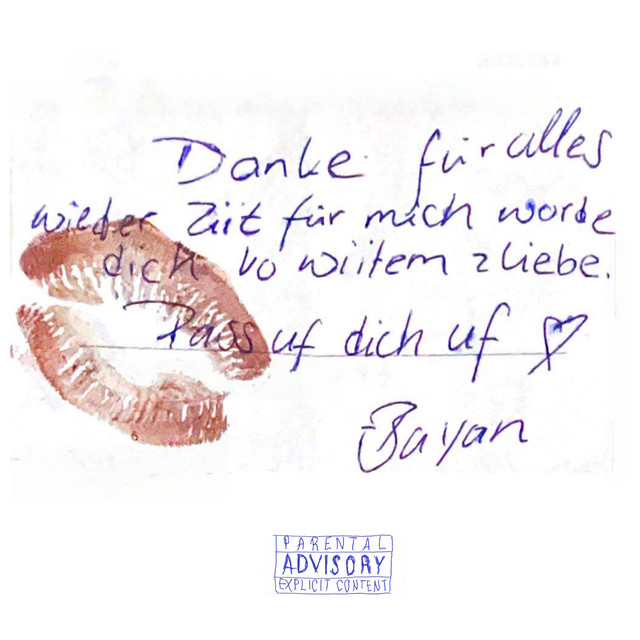 Danke für alles
wieder Ziit für mich worde
dich vo wiitem z liebe.
Pass uf dich uf
Bayan
PARENTAL
ADVISORY
EXPLICIT CONTENT